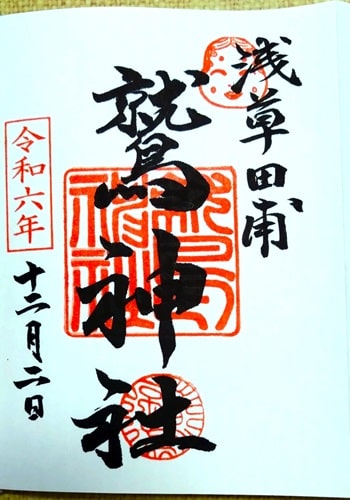 浅草田甫
鷲神社
令和六年
十二月二日